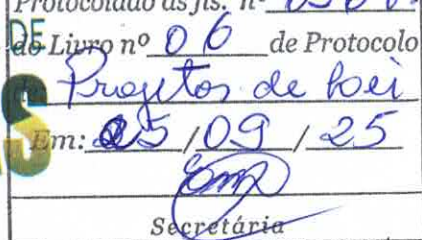 Protocolado às fls. nº
DE
do Livro nº 06 de Protocolo
Projetos de Lei
Em: 25/09/25
Secretária